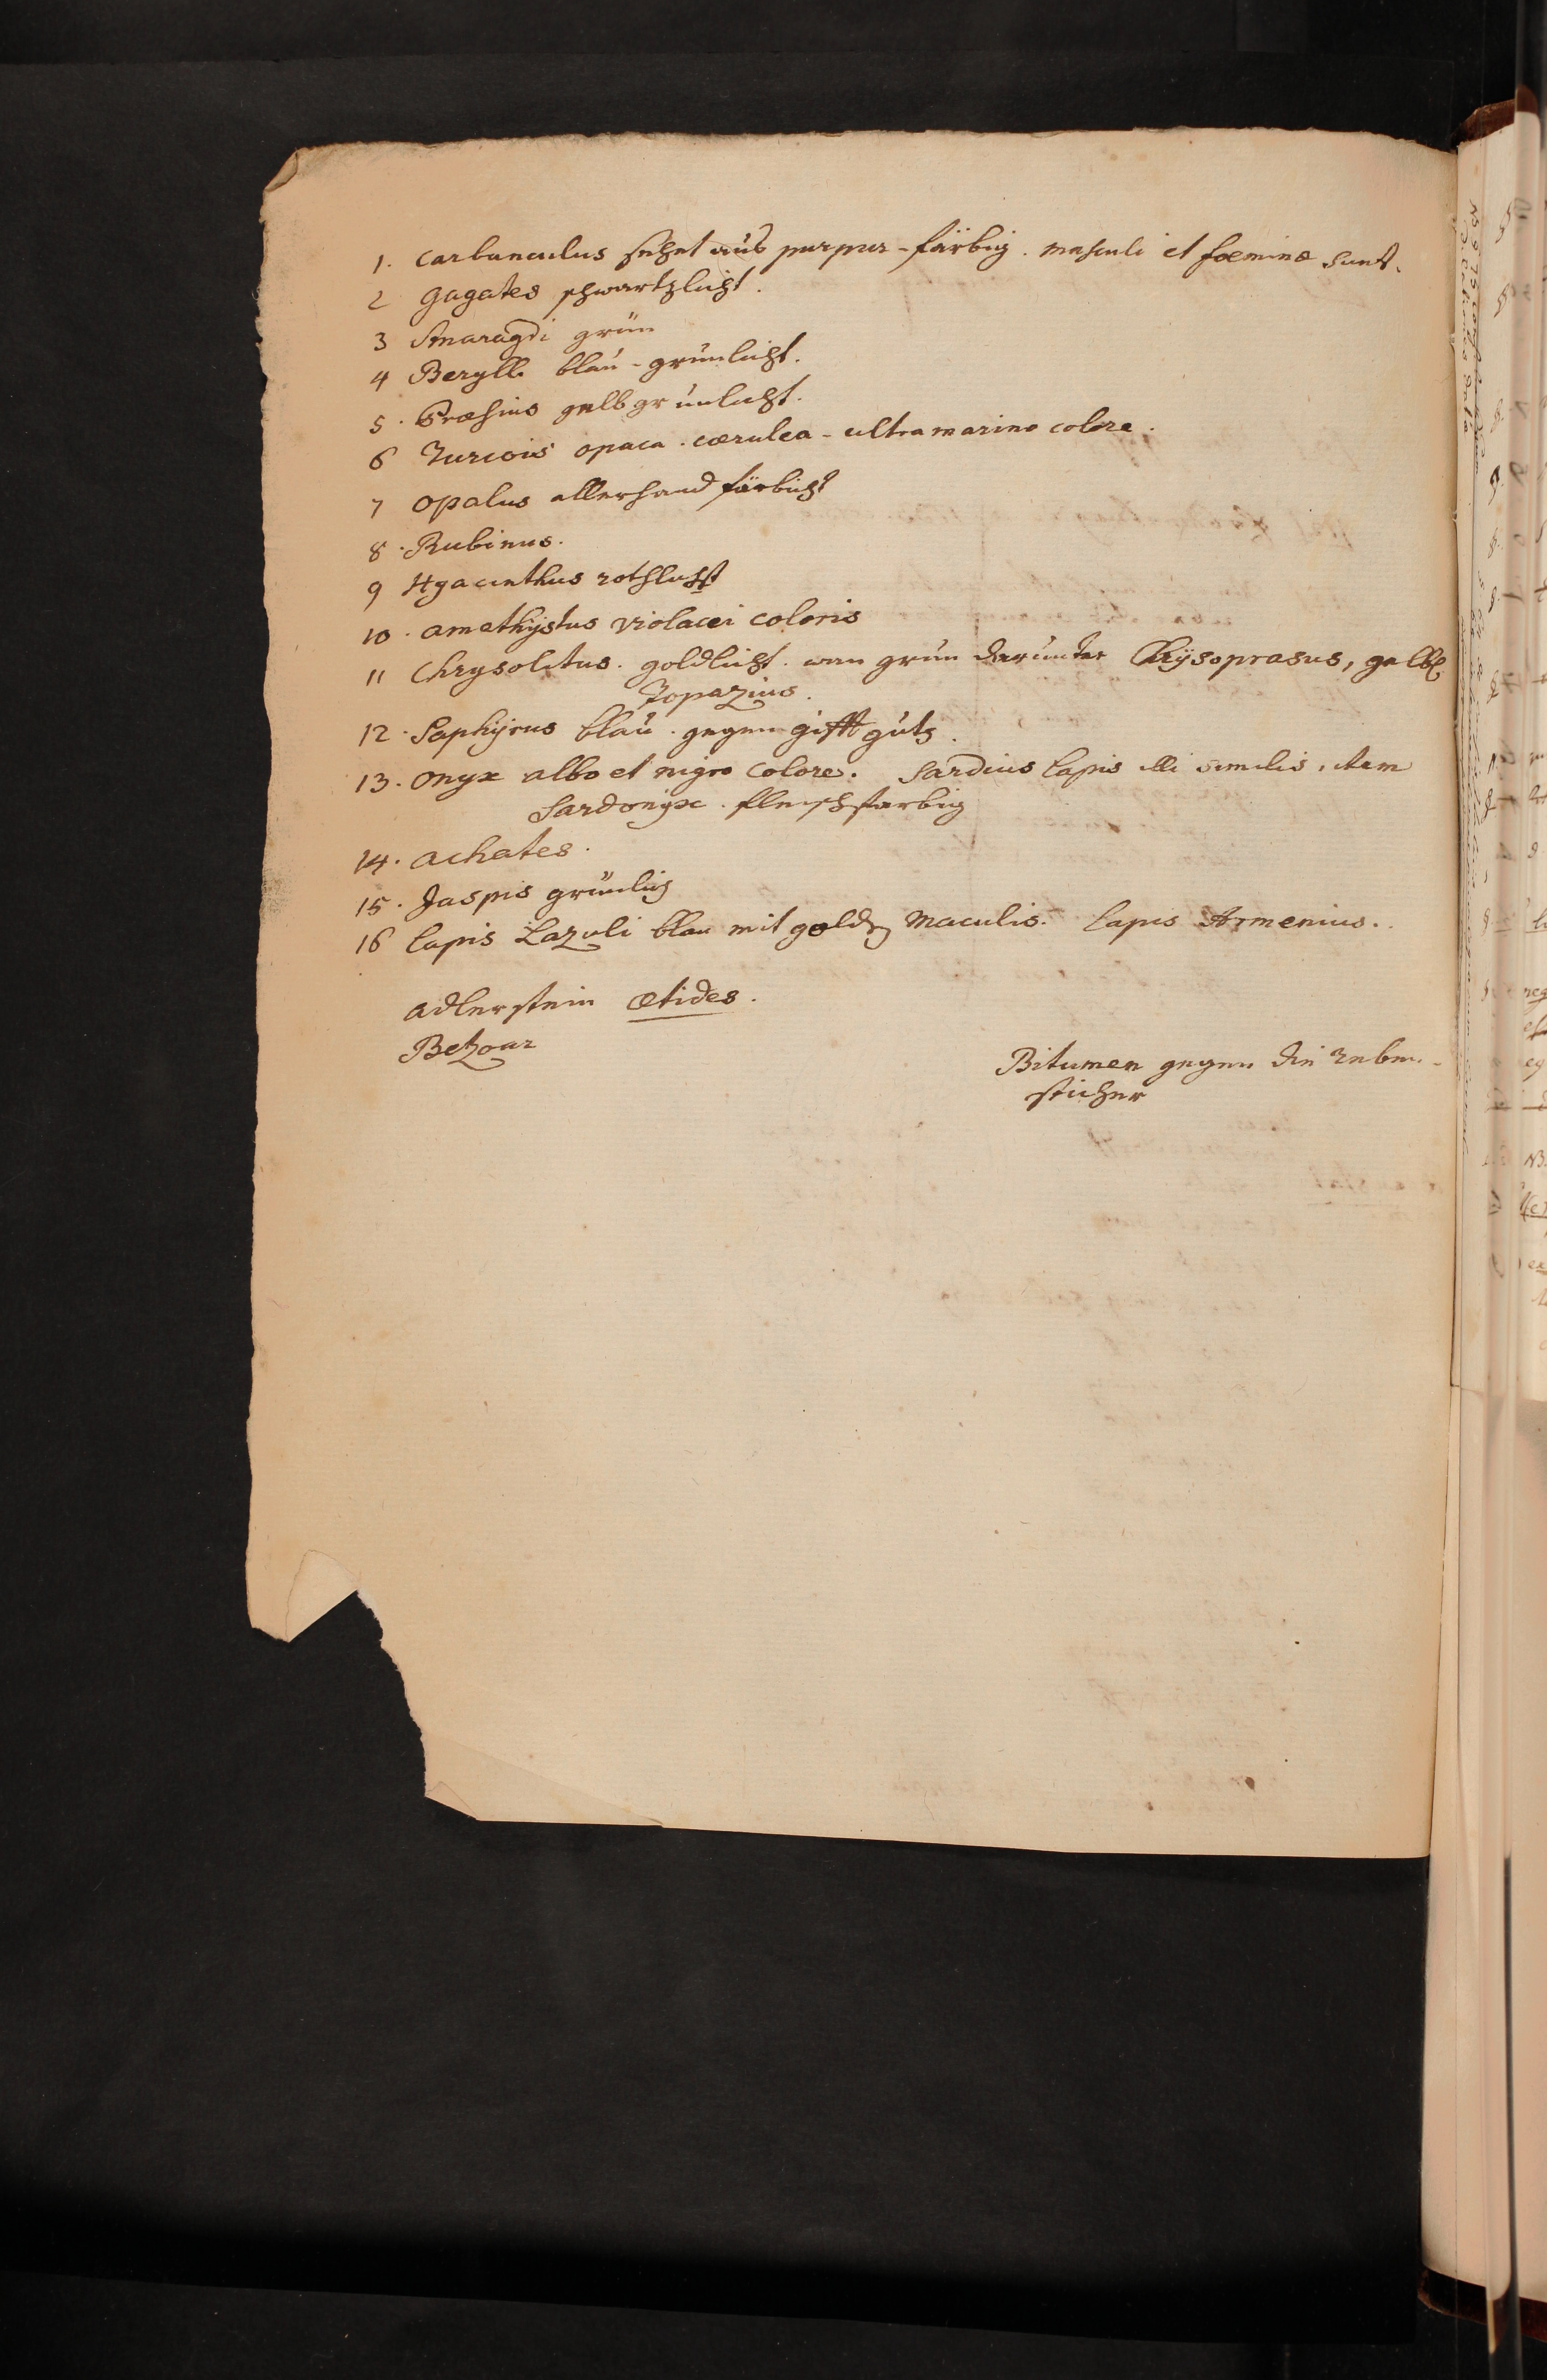 1. Carbunculus sehet aus purpur-färbig. masculi et foeminæ sunt.
2 Gagates schwartzlicht.
3 Smaragdi grün
4 Berylli blau-grünlicht.
5. Prasius gelbgrünlicht.
6 Turcois opaca. cærulea-ultramarino colore.
7 Opalus allerhand färbicht
8. Rubinus.
9 Hyacinthus rothlicht
10. Amethystus violacei coloris
11 Chrysolitus. goldlicht. wan grün darunter Chrysoprasus, gelb
Topazius.
12. Saphyrus blau. gegen gifft gut
13. Onyx albo et nigro colore. Sardius lapis illi similis, item
Sardonyx. fleischfarbig
14. Achates.
15. Jaspis grünlich
16 Lapis Lazuli blau mit golden maculis. Lapis Armenius.
Adlerstein ætides.
Betzoar
Bitumen gegen die reben-
sticher